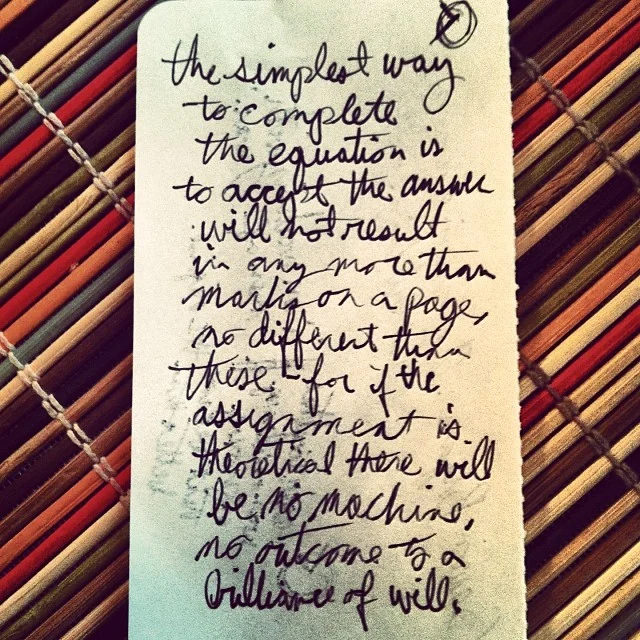 the simplest way
to complete
the equation is
to accept the answer
will not result
in any more than
marks on a page,
no different than
these - for if the
assignment is
theoretical there will
be no machine,
no outcome to a
brilliance of will.